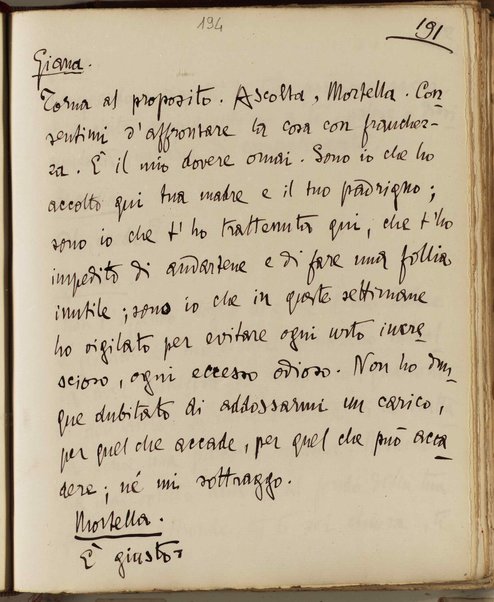 194
191
Giana.
Torna al proposito. Ascolta, Mortella. Con-
sentimi d'affrontare la cosa con franchez-
za. È il mio dovere omai. Sono io che ho
accolto qui tua madre e il tuo padrigno;
sono io che t'ho trattenuta qui, che t'ho
impedito di andartene e di fare una follia
inutile; sono io che in queste settimane
ho vigilato per evitare ogni urto incre-
scioso, ogni eccesso odioso. Non ho dun-
que dubitato di addossarmi un carico,
per quel che accade, per quel che può acca-
dere; né mi sottraggo.
Mortella.
È giusto